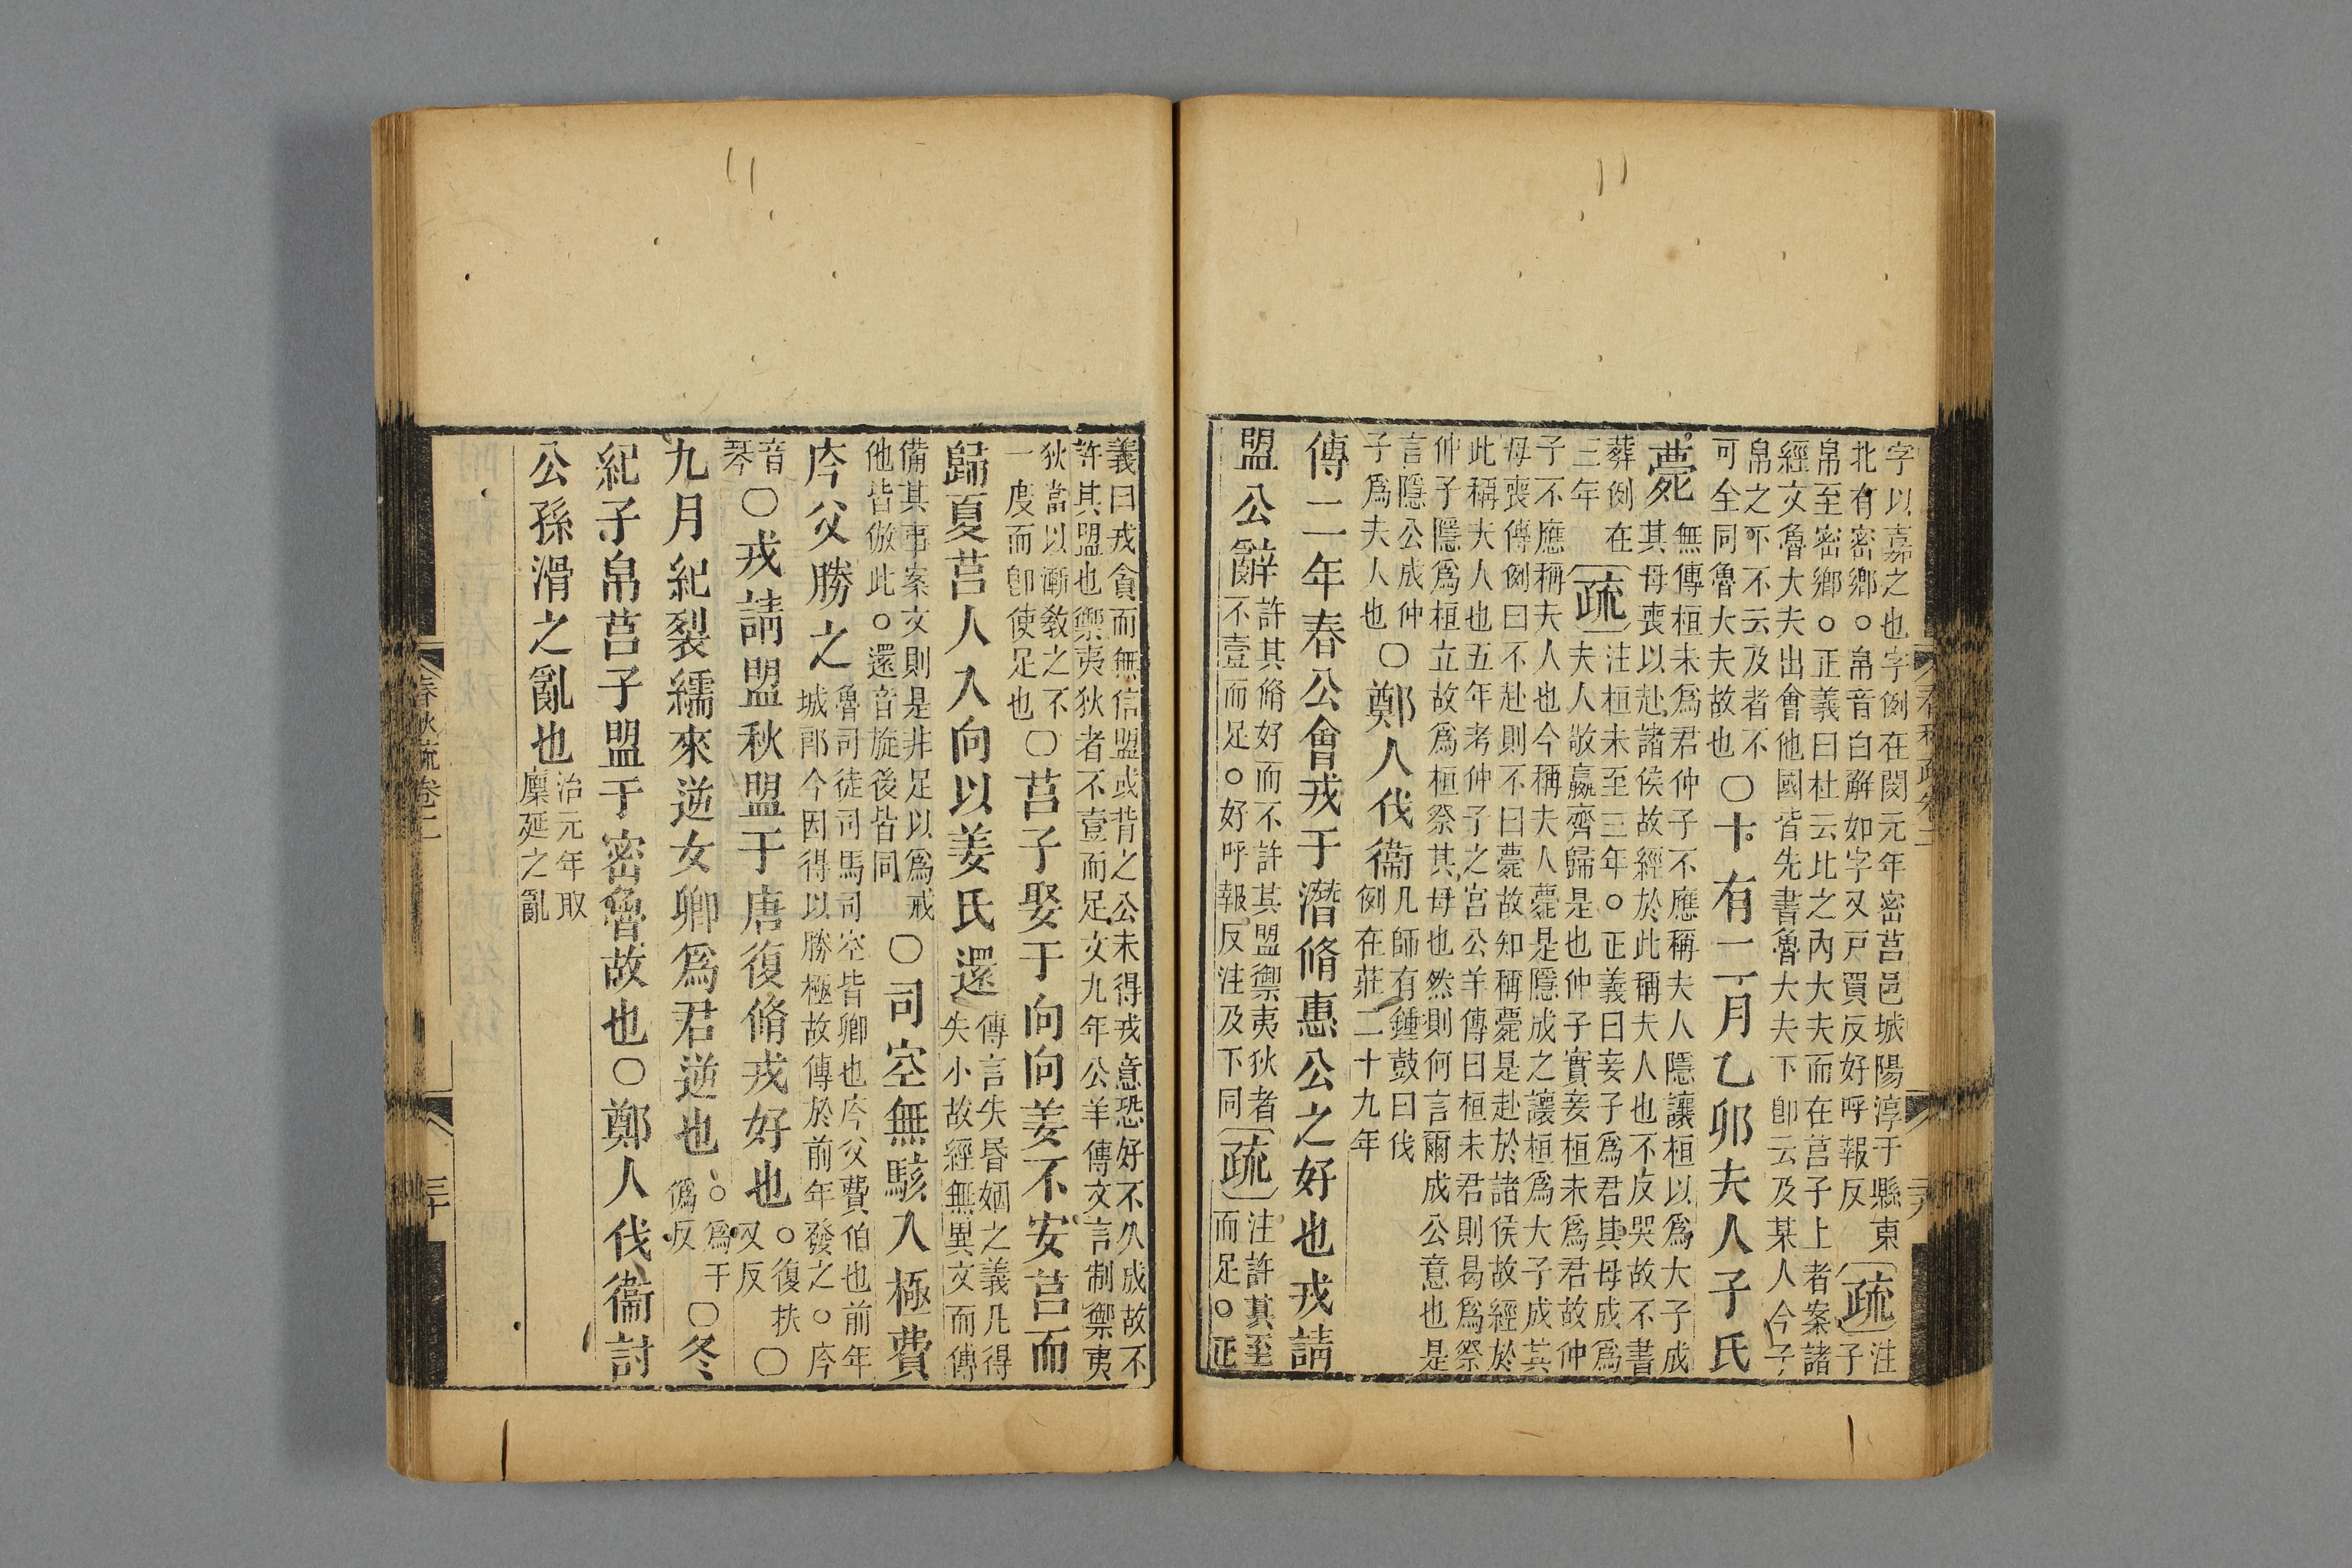 字以嘉之也字例在閔元年密莒邑城陽淳于縣東
北有密鄉○帛音白解如字又戸買反好呼報反
疏
注
子
帛至密鄉○正義曰杜云比之內大夫而在莒子上者案諸
經文魯大夫出會他國皆先書魯大夫下卽云及某人今子
帛之下不云及者不
可全同魯大夫故也
○十有二月乙卯夫人子氏
薨
無傳桓未爲君仲子不應稱夫人隱讓桓以爲大子成
其母喪以赴諸侯故經於此稱夫人也不反哭故不書
葬例在
三年
疏
注桓未至三年○正義曰妾子爲君其母成爲
夫人敬嬴齊歸是也仲子實妾桓未爲君故仲
子不應稱夫人也今稱夫人薨是隱成之讓桓爲大子成其
母喪傳例曰不赴則不曰薨故知稱薨是赴於諸侯故經於
此稱夫人也五年考仲子之宮公羊傳曰桓未君則曷爲祭
仲子隱爲桓立故爲桓祭其母也然則何言爾成公意也是
言隱公成仲
子爲夫人也
○鄭人伐衞
凡師有鍾鼓曰伐
例在莊二十九年
傳二年春公會戎于潛脩惠公之好也戎請
盟公辭
許其脩好而不許其盟禦夷狄者
不壹而足○好呼報反注及下同
疏
注許其至
而足○正
義曰戎貪而無信盟或背之公未得戎意恐好不久成故不
許其盟也禦夷狄者不壹而足文九年公羊傳文言制禦夷
狄當以漸敎之不
一度而卽使足也
○莒子娶于向向姜不安莒而
歸夏莒人入向以姜氏還
傳言失昏姻之義凡得
失小故經無異文而傳
備其事案文則是非足以爲戒
他皆倣此○還音旋後皆同
○司空無駭入極費
庈父勝之
魯司徒司馬司空皆卿也庈父費伯也前年
城郎今因得以勝極故傳於前年發之○庈
音
琴
○戎請盟秋盟于唐復脩戎好也
○復扶
又反
○
九月紀裂繻來逆女卿爲君逆也
○爲于
僞反
○冬
紀子帛莒子盟于密魯故也○鄭人伐衞討
公孫滑之亂也
治元年取
廩延之亂
春秋疏卷二
三十